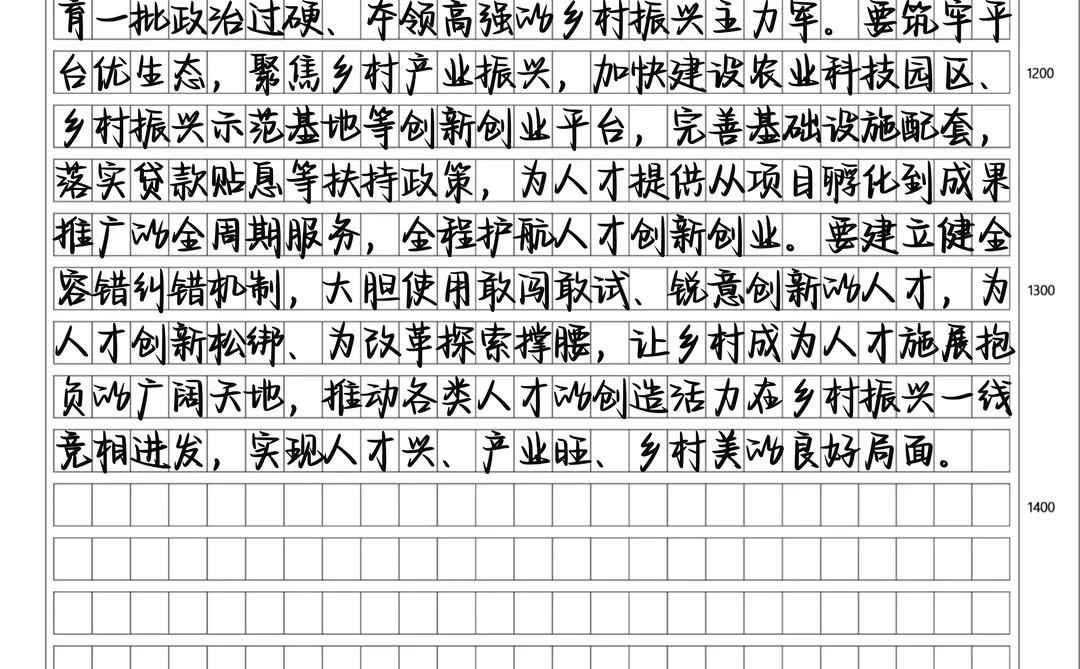 育一批政治过硬、本领高强的乡村振兴主力军。要筑牢平
台优生态，聚焦乡村产业振兴，加快建设农业科技园区、
1200
乡村振兴示范基地等创新创业平台，完善基础设施配套，
落实贷款贴息等扶持政策，为人才提供从项目孵化到成果
推广的全周期服务，全程护航人才创新创业。要建立健全
容错纠错机制，大胆使用敢闯敢试、锐意创新的人才，为
1300
人才创新松绑、为改革探索撑腰，让乡村成为人才施展抱
负的广阔天地，推动各类人才的创造活力在乡村振兴一线
竞相迸发，实现人才兴、产业旺、乡村美的良好局面。
1400